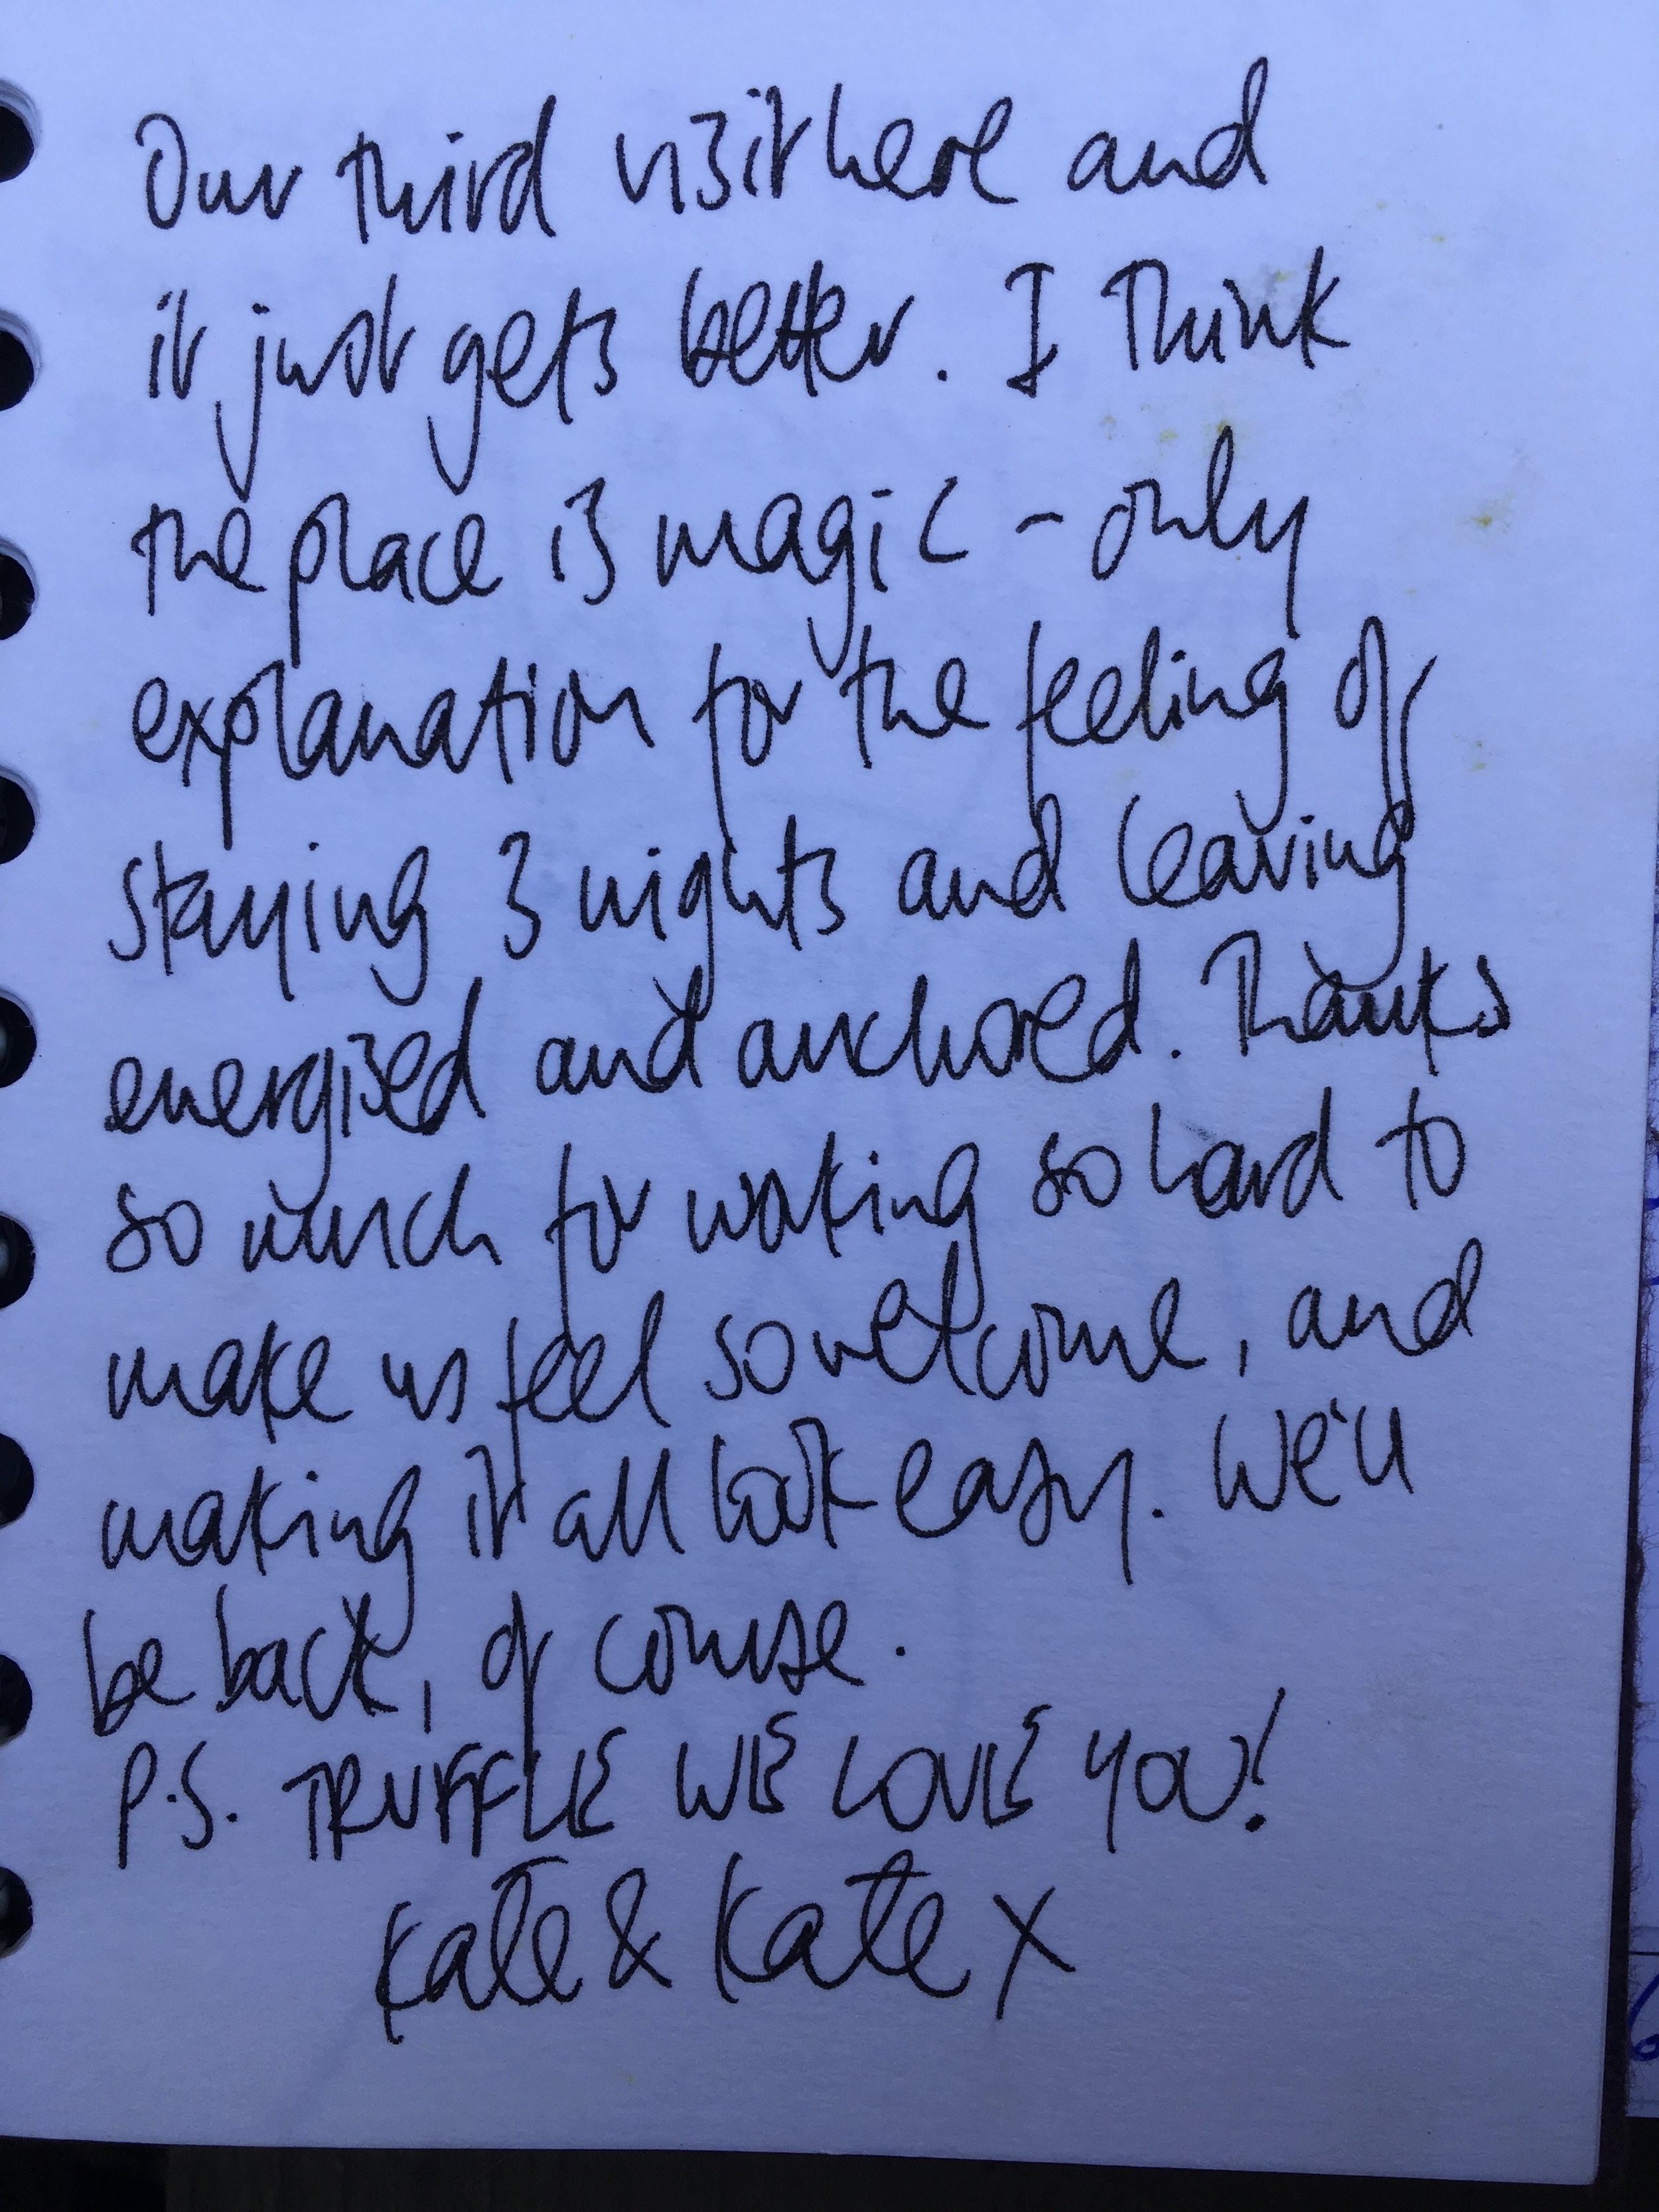 Our third visit here and
it just gets better. I think
the place is magic - only
explanation for the feeling of
staying 3 nights and leaving
energised and anchored. Thanks
so much for working so hard to
make us feel so welcome, and
making it all look easy. We'll
be back, of course.
P.S. TRUFFLE WE LOVE YOU!
Kate & Kate x